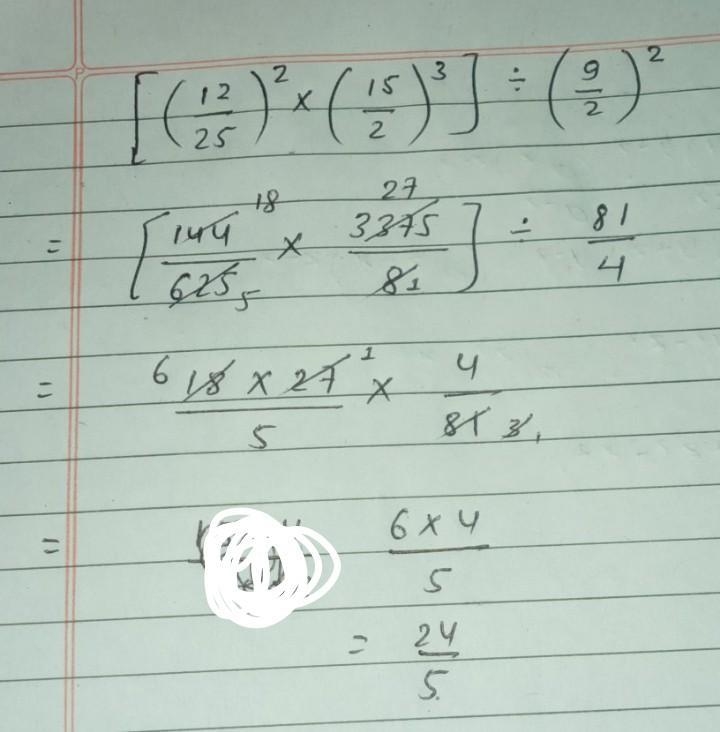 [(12/25)² × (15/2)³] ÷ (9/2)²
= [144/625 × 3375/8] ÷ 81/4
18 27 5 1
= 18 × 27/5 × 4/81
6 1 3 1
= 6 × 4/5
= 24/5